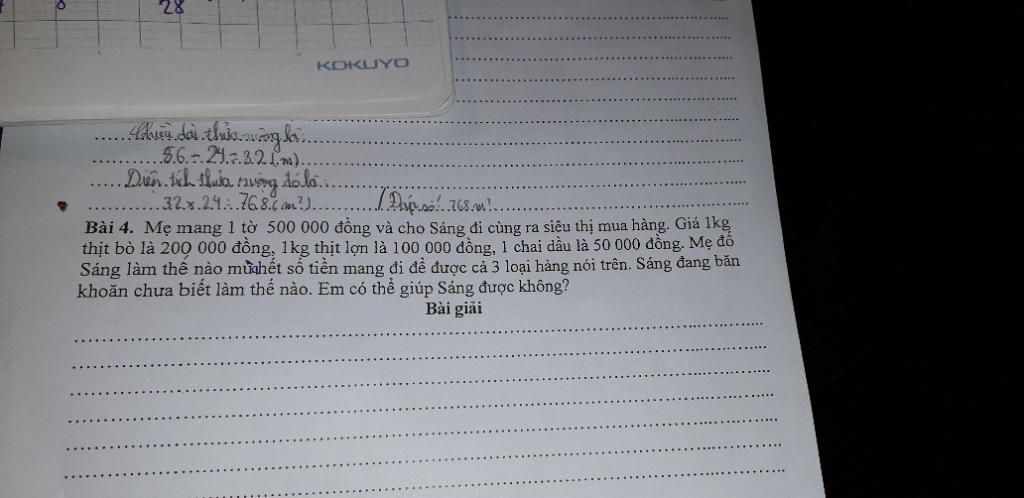 28
KOKUYO
Chiều dài thửa ruộng là:
56 - 24 = 32 (m)
Diện tích thửa ruộng đó là:
32 x 24 = 768 (m²) Đáp số: 768 m²
Bài 4. Mẹ mang 1 tờ 500 000 đồng và cho Sáng đi cùng ra siêu thị mua hàng. Giá 1kg
thịt bò là 200 000 đồng, 1kg thịt lợn là 100 000 đồng, 1 chai dầu là 50 000 đồng. Mẹ đố
Sáng làm thế nào mua hết số tiền mang đi để được cả 3 loại hàng nói trên. Sáng đang băn
khoăn chưa biết làm thế nào. Em có thể giúp Sáng được không?
Bài giải